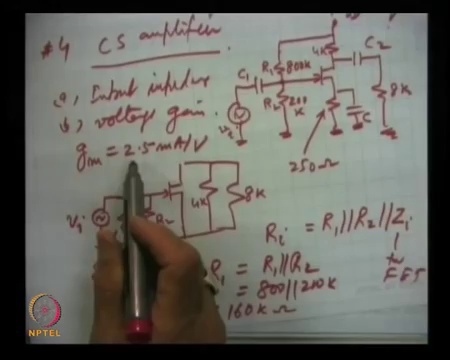 #4 CS amplifier
a, Input impedance
b, voltage gain.
gm = 2.5 mA/V
R1 800K
4K
C2
C1
R2 200K
8K
Vi
C
250Ω
Vi
R2
4K
8K
Ri = R1||R2||Zi
FET
R1 = R1||R2
= 800||200K
160KΩ
NPTEL